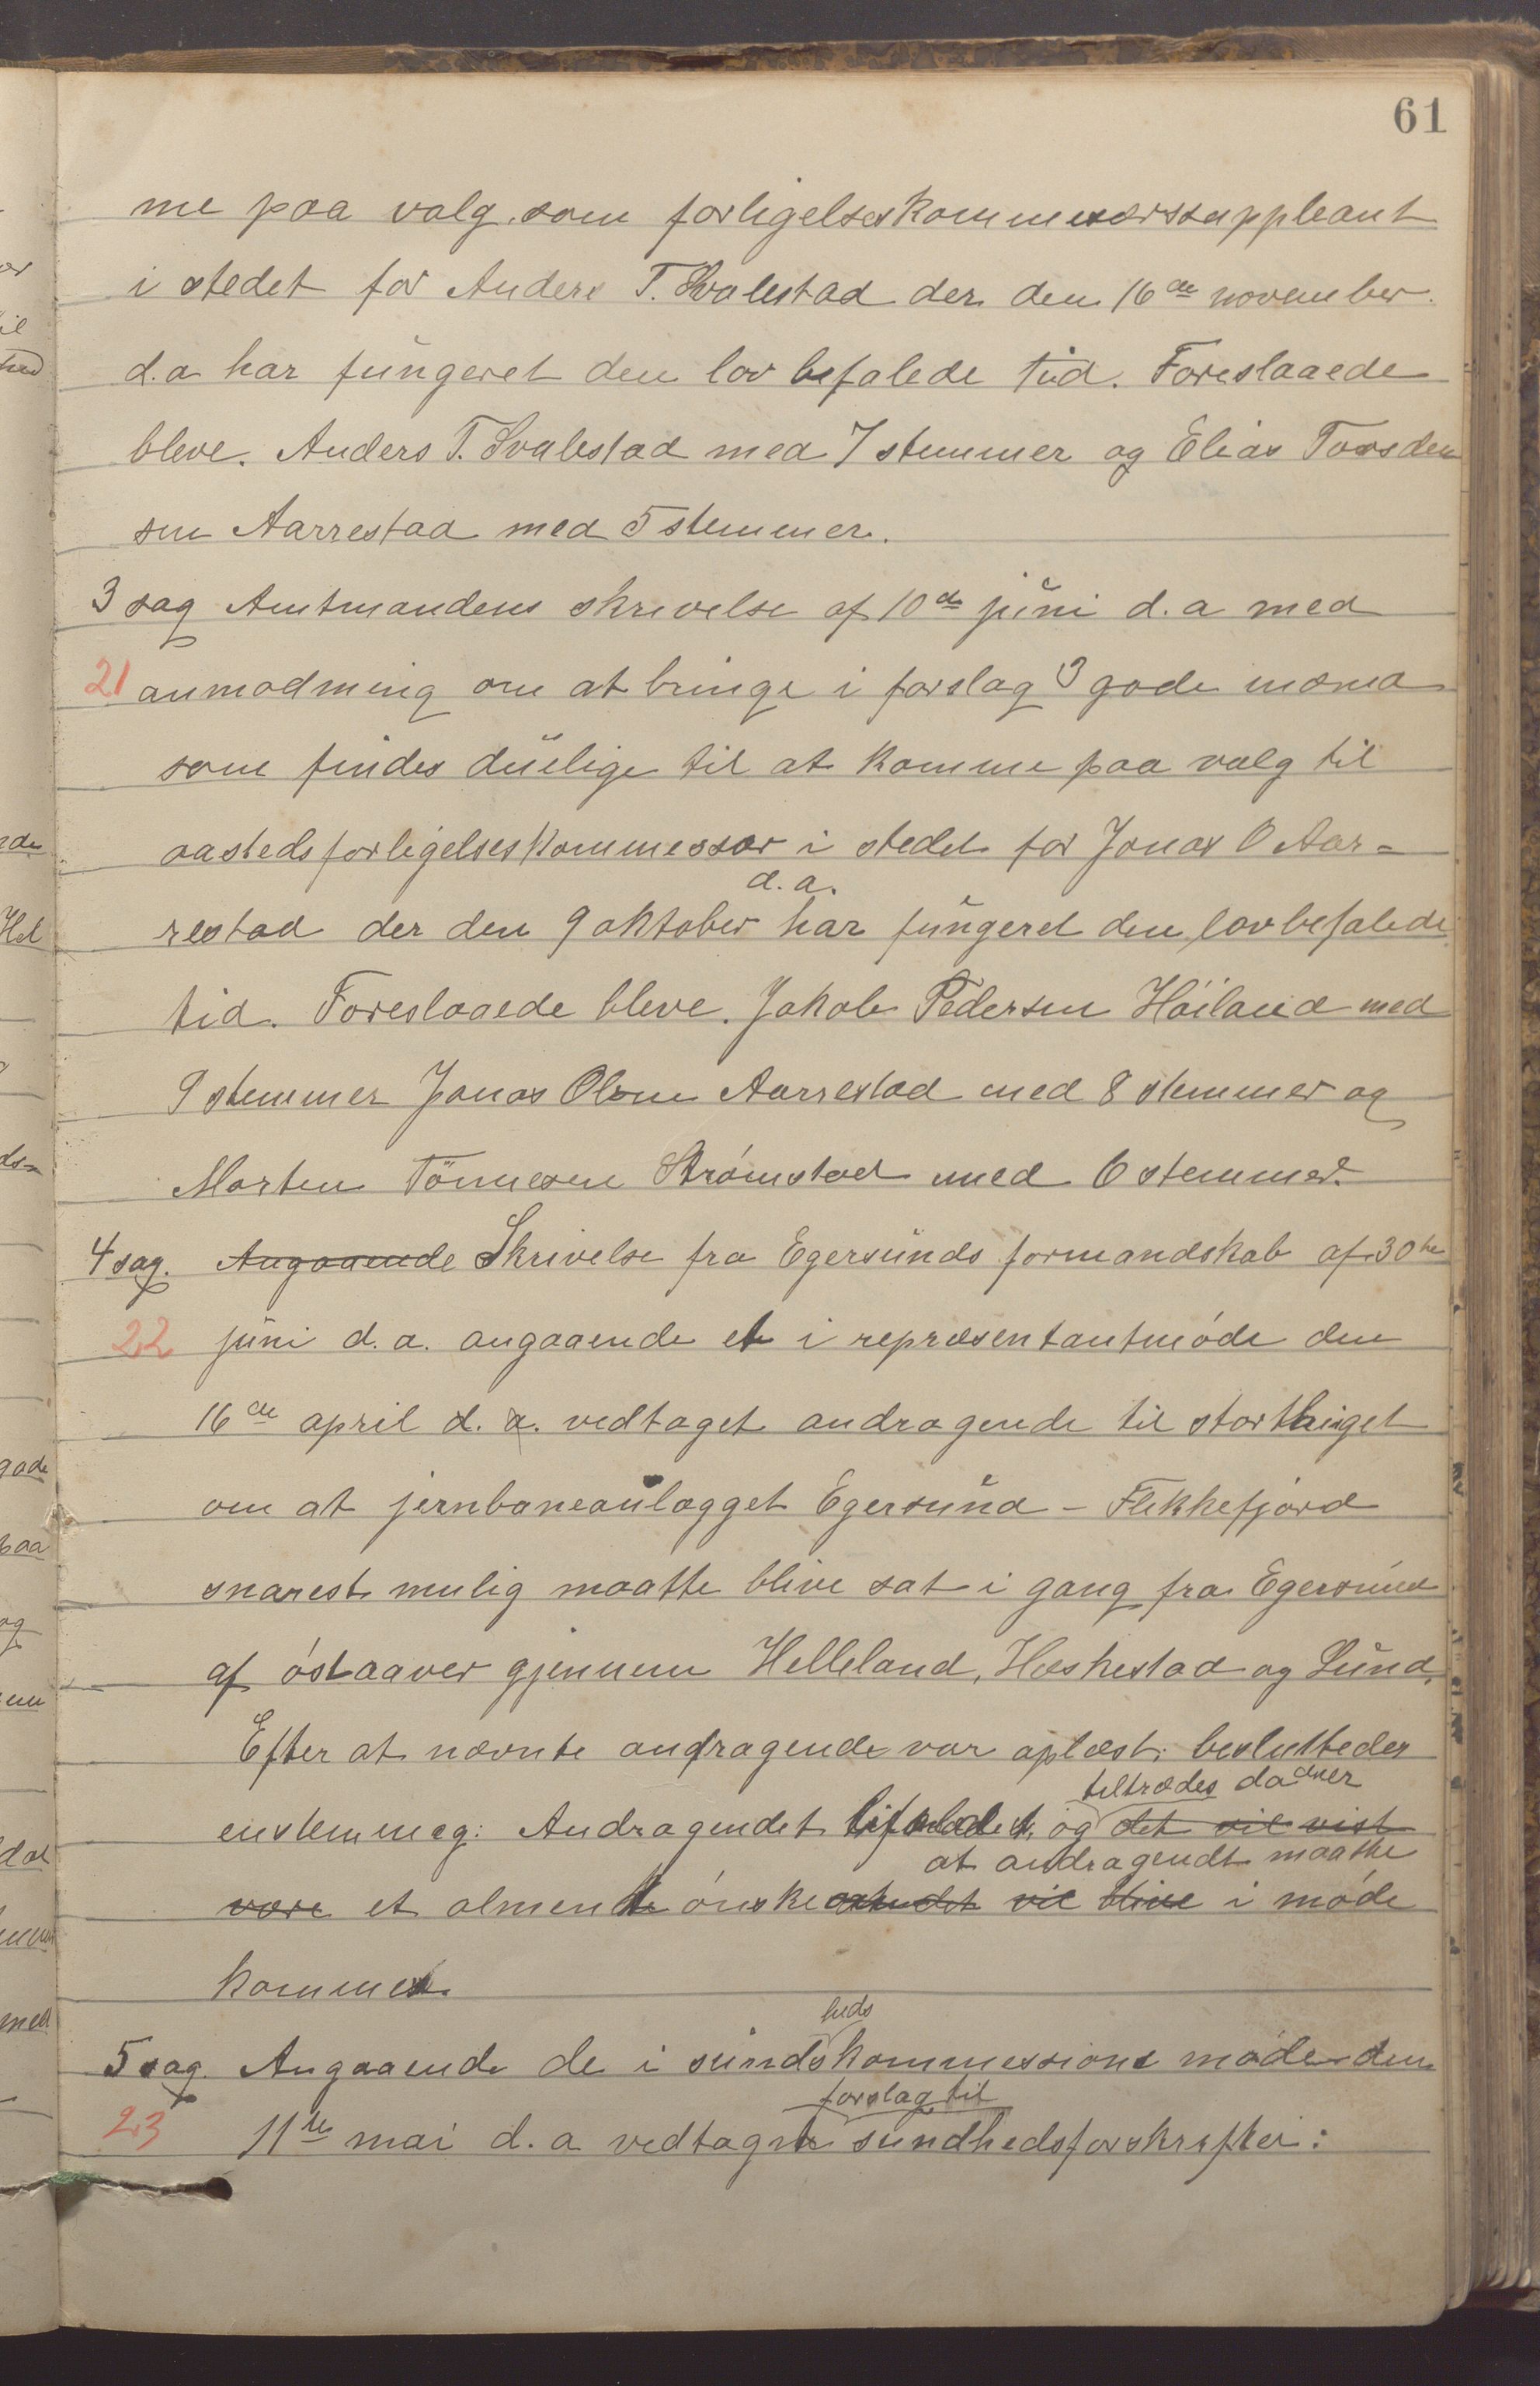 61
me paa valg som forligelseskommesærssuppleant
i stedet for Anders T. Svalestad der den 16de november
d.a har fungeret den lov befalede tid. Foreslaaede
bleve. Anders T. Svalestad med 7 stemmer og Elias Torsden
sen Aarrestad med 5 stemmer.
3 sag Amtmandens skrivelse af 10de juni d.a med
21 anmodming om at bringe i forslag 3 gode mænd
som findes duelige til at komme paa valg til
aastedsforligelseskommessær i stedet for Jonas O Aar-
d.a.
restad der den 9 oktober har fungeret den lovbefalede
tid. Foreslaaede bleve. Jakob Pedersen Höiland med
9 stemmer Jonas Olsen Aarrestad med 8 stemmer og
Morten Tönnesen Strømstad med 6 stemmer.
4 sag. Angaaende Skrivelse fra Egersunds formandskab af 30te
22 juni d.a. angaaende et i repræsentantmøde den
16de april d. a. vedtaget andragende til storthinget
om at jernbaneanlægget Egersund - Flekkefjord
snarest mulig maatte blive sat i gang fra Egersund
af østaaver gjennem Helleland, Heskestad og Lund,
Efter at nævnte andragende var oplæst, besluttedes
tiltrædes da
enstemmeg: Andragendet og det vil vist
at andragendt maatte
være et almen ønske vil blive i møde
kommet.
heds
5 sag. Angaaende de i sundskommessions møde den
forslag til
23 11te mai d.a vedtagne sundhedsforskrifter: